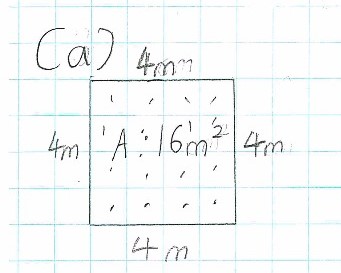 (a)
4m
4m A: 16m² 4m
4m